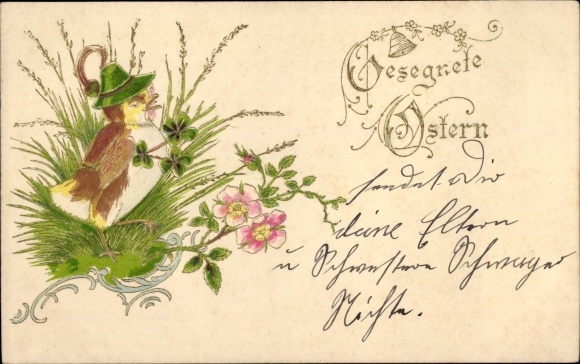 Gesegnete
Ostern
sendet Dir
deine Eltern
u Schwestern Schwager
Nichte.